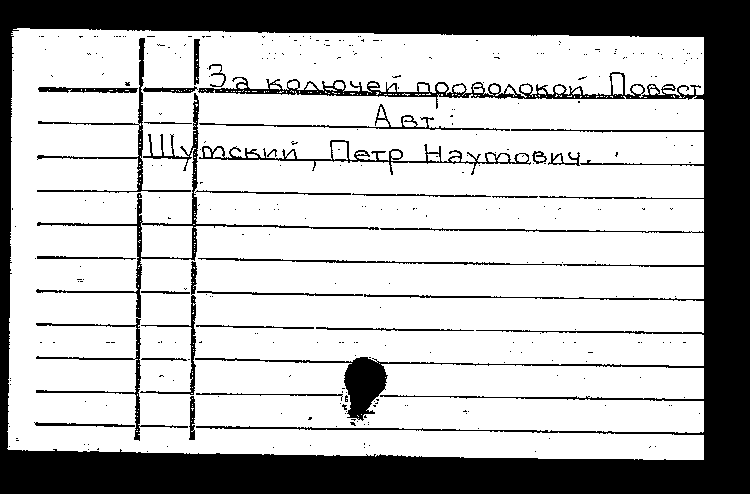 За колючей проволокой. Повест
Авт.:
Шутский, Петр Наумович.